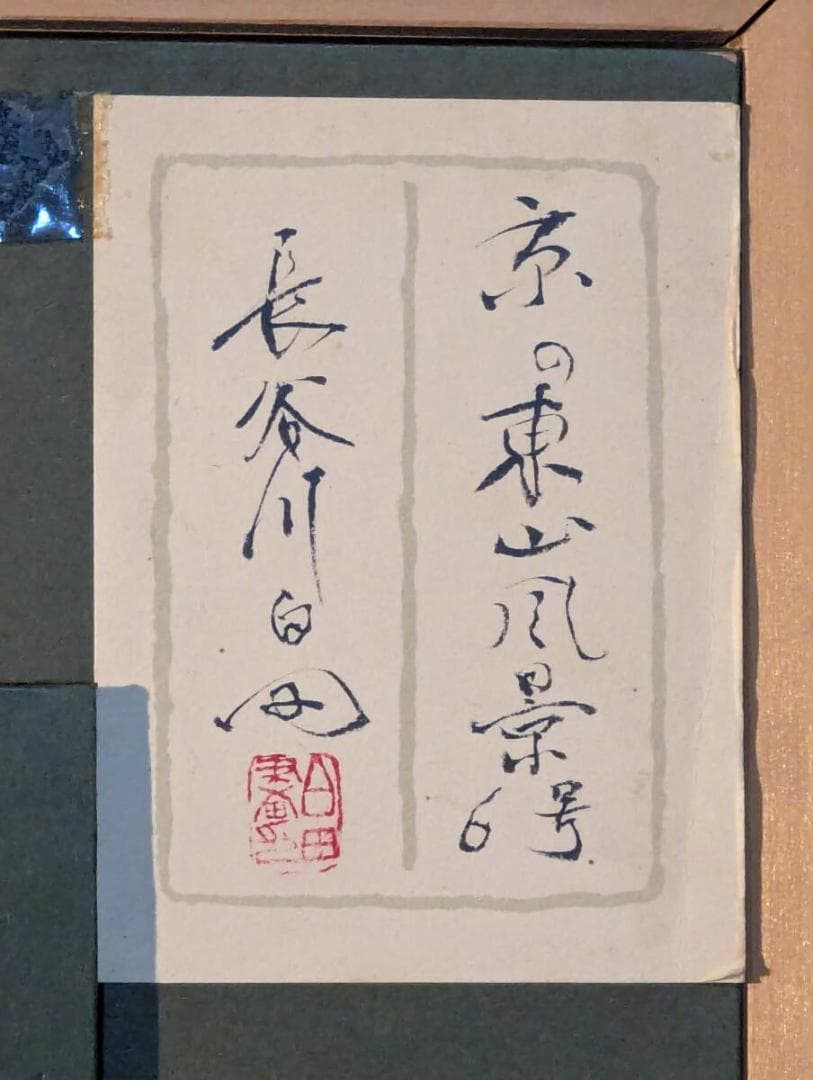 京の東山風景6号
長谷川白田
白田